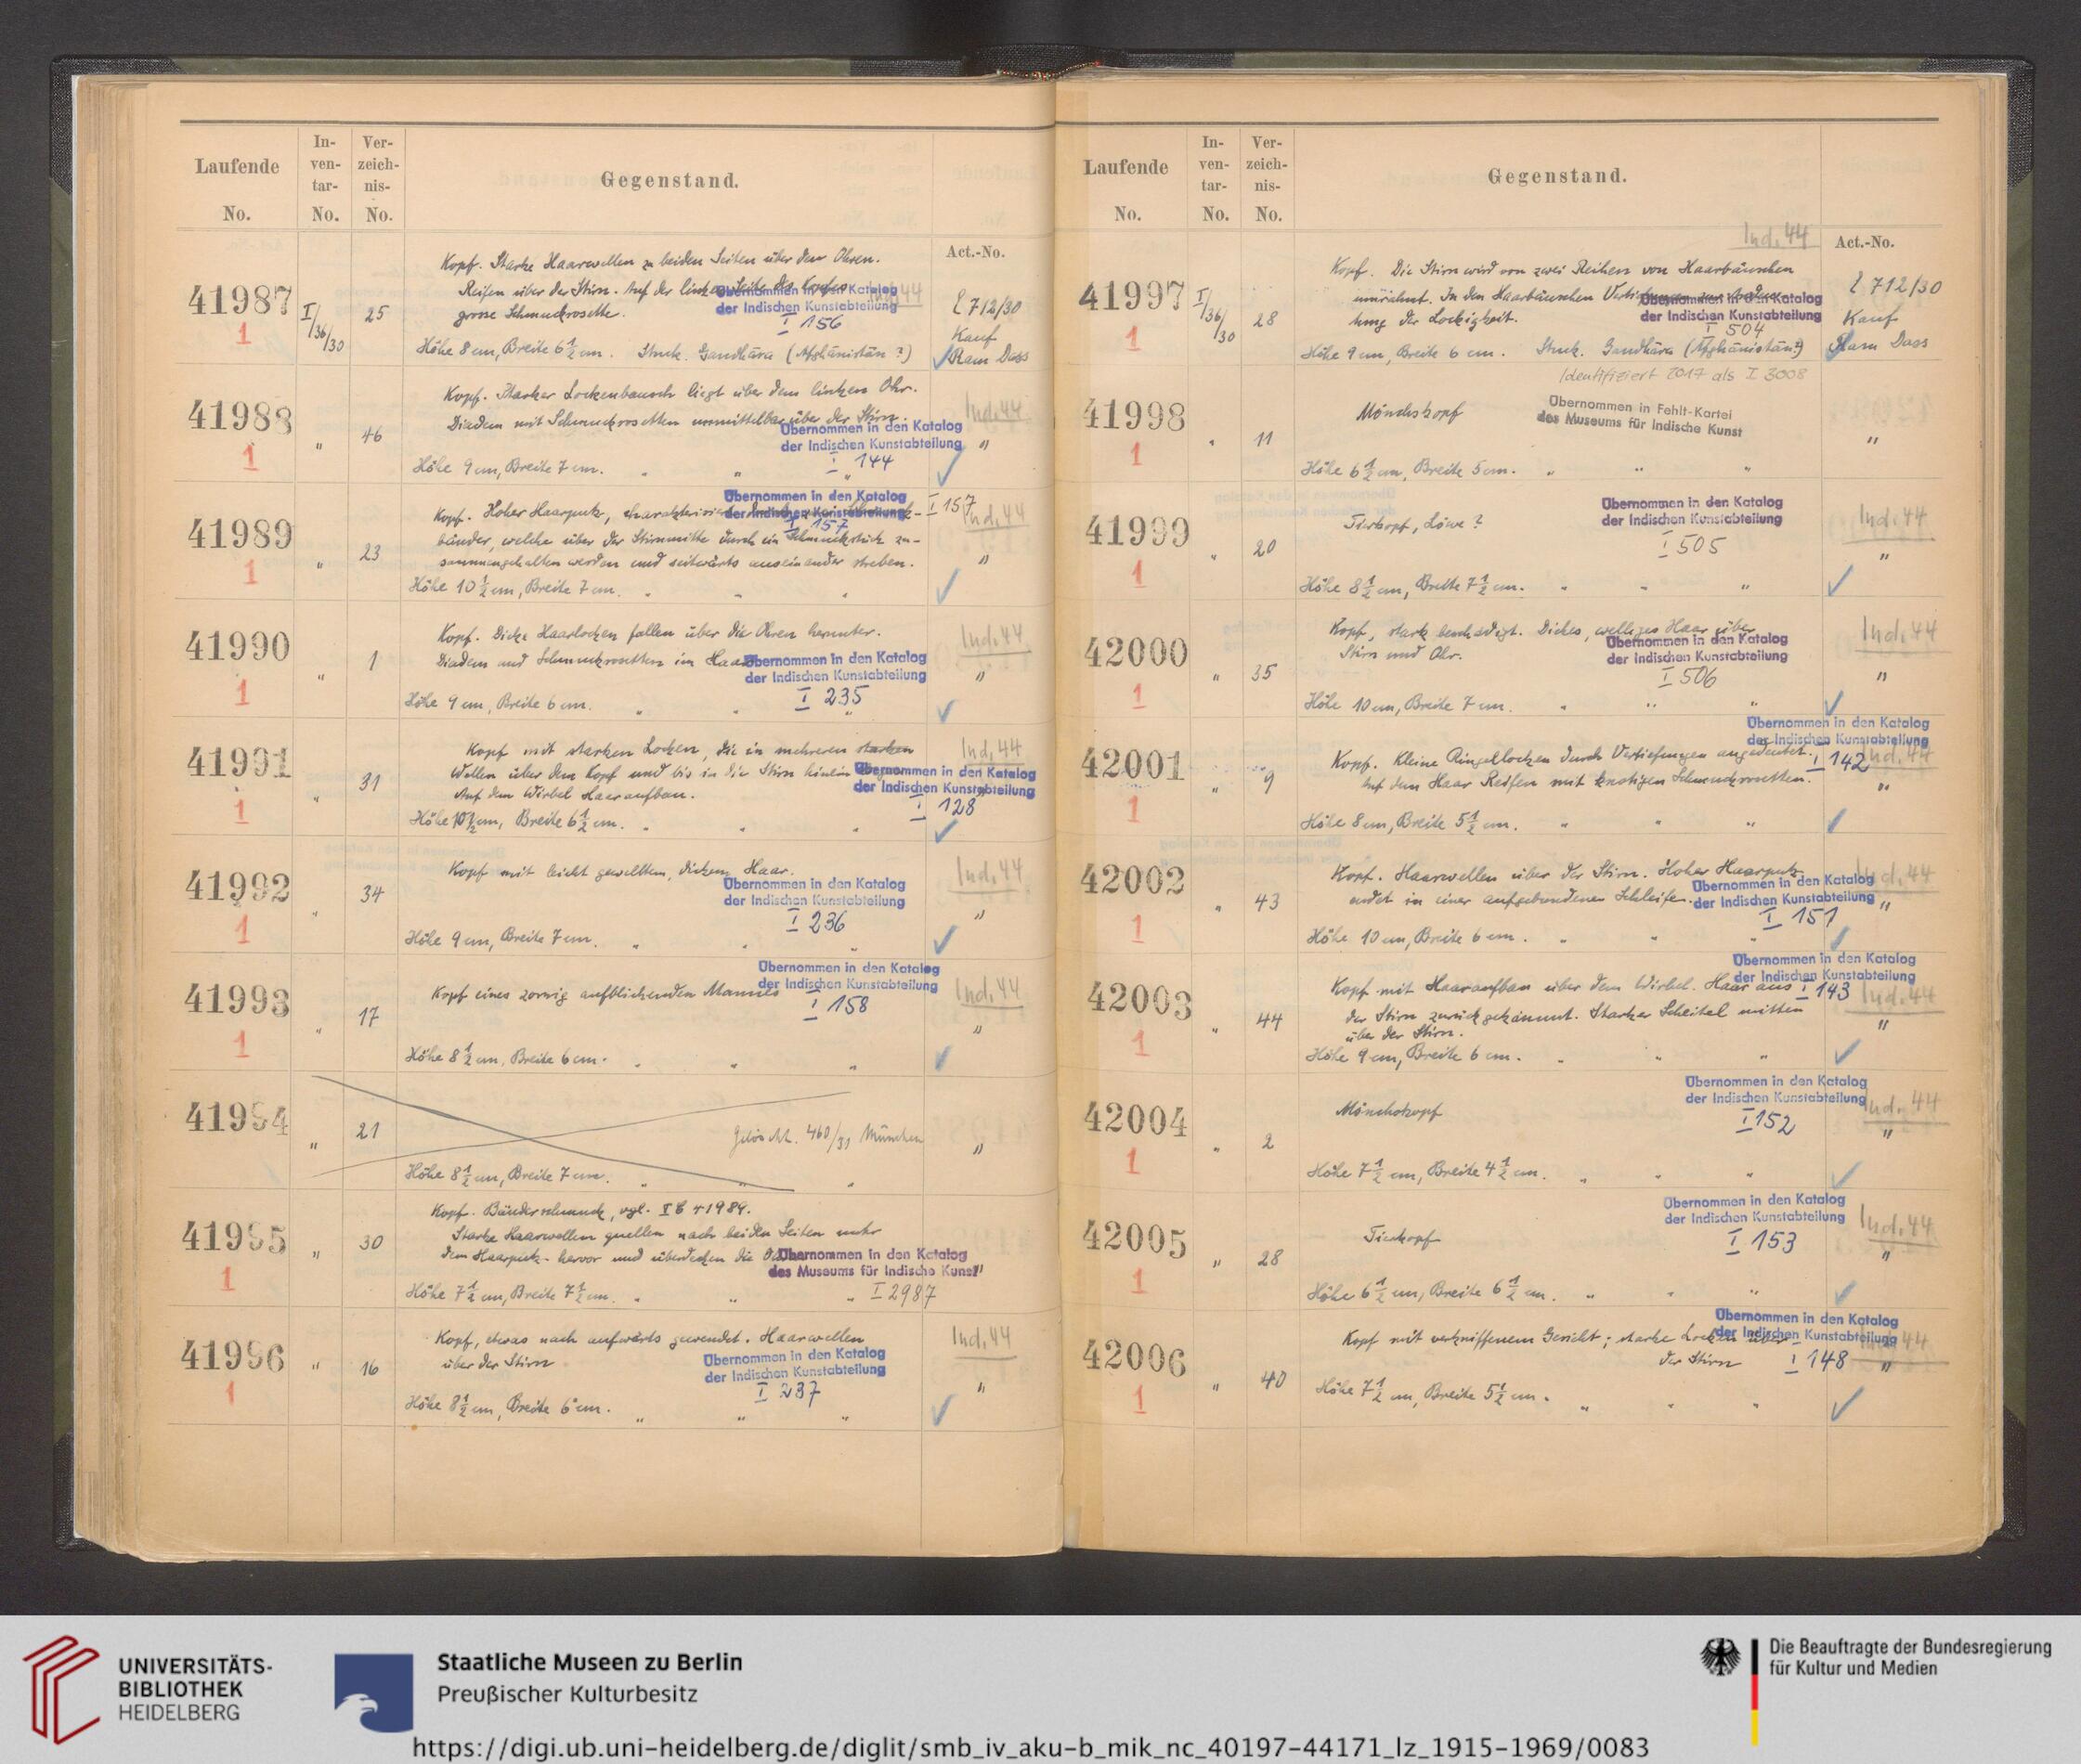 Laufende
No.
In-
ven-
tar-
No.
Ver-
zeich-
nis-
No.
Gegenstand.
Act.-No.
41987
1
I/36/30
25
Kopf. Starke Haarwellen zu beiden Seiten über den Ohren.
Reifen über der Stirn. Auf der linken Seite des Kopfes
grosse Schmuckrosette.
Übernommen in den Katalog
der Indischen Kunstabteilung
I 156
Ind. 44
Höhe 8 cm, Breite 6 1/2 cm. Stuck. Gandhāra (Afghānistān?)
E 712/30
Kauf
Ram Dass
41988
1
"
46
Kopf. Starker Lockenbausch liegt über dem linken Ohr.
Diadem mit Schmuckrosetten unmittelbar über der Stirn.
Übernommen in den Katalog
der Indischen Kunstabteilung
I 144
Ind. 44
"
Höhe 9 cm, Breite 7 cm. " " "
41989
1
"
23
Übernommen in den Katalog
der Indischen Kunstabteilung
I 157
I 157
Ind. 44
Kopf. Hoher Haarputz,
bänder, welche über der Stirnmitte durch ein Schmuckstück zu-
sammengehalten werden und seitwärts auseinander streben.
"
Höhe 10 1/2 cm, Breite 7 cm. " " "
41990
1
"
1
Kopf. Dicke Haarlocken fallen über die Ohren herunter.
Diadem und Schmuckrosetten im Haar
Übernommen in den Katalog
der Indischen Kunstabteilung
I 235
Ind. 44
"
Höhe 9 cm, Breite 6 cm. " " "
41991
1
"
31
Kopf mit starken Locken, die in mehreren starken
Wellen über den Kopf und bis in die Stirn hinein
Auf dem Wirbel Haaraufbau.
Übernommen in den Katalog
der Indischen Kunstabteilung
I 128
Ind. 44
"
Höhe 10 1/2 cm, Breite 6 1/2 cm. " " "
41992
1
"
34
Kopf mit leicht gewelltem, dickem Haar.
Übernommen in den Katalog
der Indischen Kunstabteilung
I 236
Ind. 44
"
Höhe 9 cm, Breite 7 cm. " " "
41993
1
"
17
Kopf eines zornig aufblickenden Mannes
Übernommen in den Katalog
der Indischen Kunstabteilung
I 158
Ind. 44
"
Höhe 8 1/2 cm, Breite 6 cm. " " "
41994
"
21
Gelöscht. 460/31 München
"
Höhe 8 1/2 cm, Breite 7 cm. " " "
41995
1
"
30
Kopf. Bänderschmuck, vgl. I C 41989.
Starke Haarwellen quellen nach beiden Seiten unter
dem Haarputz hervor und überdecken die
Übernommen in den Katalog
des Museums für Indische Kunst
I 2987
"
Höhe 7 1/2 cm, Breite 7 1/2 cm. " " "
41996
1
"
16
Kopf, etwas nach aufwärts gewendet. Haarwellen
über der Stirn
Übernommen in den Katalog
der Indischen Kunstabteilung
I 237
Ind. 44
"
Höhe 8 1/2 cm, Breite 6 cm. " " "
Laufende
No.
In-
ven-
tar-
No.
Ver-
zeich-
nis-
No.
Gegenstand.
Ind. 44
Act.-No.
41997
1
I/36/30
28
Kopf. Die Stirn wird von zwei Reihen von Haarbäuschen
umrahmt. In den Haarbäuschen Vertiefungen zur Andeu-
tung der Lockigkeit.
Übernommen in den Katalog
der Indischen Kunstabteilung
I 504
Höhe 9 cm, Breite 6 cm. Stuck. Gandhāra (Afghānistān?)
E 712/30
Kauf
Ram Dass
41998
1
"
11
Identifiziert 2017 als I 3008
Mönchskopf
Übernommen in Fehlt-Kartei
des Museums für Indische Kunst
"
Höhe 6 1/2 cm, Breite 5 cm. " " "
41999
1
"
20
Tierkopf, Löwe?
Übernommen in den Katalog
der Indischen Kunstabteilung
I 505
Ind. 44
"
Höhe 8 1/2 cm, Breite 7 1/2 cm. " " "
42000
1
"
35
Kopf, stark beschädigt. Dickes, welliges Haar über
Stirn und Ohr.
Übernommen in den Katalog
der Indischen Kunstabteilung
I 506
Ind. 44
"
Höhe 10 cm, Breite 7 cm. " " "
42001
1
"
9
Übernommen in den Katalog
der Indischen Kunstabteilung
I 142
Ind. 44
Kopf. Kleine Ringellocken durch Vertiefungen angedeutet.
Auf dem Haar Reifen mit knotigen Schmuckrosetten.
"
Höhe 8 cm, Breite 5 1/2 cm. " " "
42002
1
"
43
Kopf. Haarwellen über der Stirn. Hoher Haarputz
endet in einer aufgebundenen Schleife.
Übernommen in den Katalog
der Indischen Kunstabteilung
I 151
Ind. 44
"
Höhe 10 cm, Breite 6 cm. " " "
42003
1
"
44
Übernommen in den Katalog
der Indischen Kunstabteilung
I 143
Ind. 44
Kopf mit Haaraufbau über dem Wirbel. Haar aus
der Stirn zurückgekämmt. Starker Scheitel mitten
über der Stirn.
"
Höhe 9 cm, Breite 6 cm. " " "
42004
1
"
2
Mönchskopf
Übernommen in den Katalog
der Indischen Kunstabteilung
I 152
Ind. 44
"
Höhe 7 1/2 cm, Breite 4 1/2 cm. " " "
42005
1
"
28
Tierkopf
Übernommen in den Katalog
der Indischen Kunstabteilung
I 153
Ind. 44
"
Höhe 6 1/2 cm, Breite 6 1/2 cm. " " "
42006
1
"
40
Kopf mit verkniffenem Gesicht; starke Locken über
der Stirn
Übernommen in den Katalog
der Indischen Kunstabteilung
I 148
Ind. 44
"
Höhe 7 1/2 cm, Breite 5 1/2 cm. " " "
UNIVERSITÄTS-
BIBLIOTHEK
HEIDELBERG
Staatliche Museen zu Berlin
Preußischer Kulturbesitz
Die Beauftragte der Bundesregierung
für Kultur und Medien
https://digi.ub.uni-heidelberg.de/diglit/smb_iv_aku-b_mik_nc_40197-44171_lz_1915-1969/0083